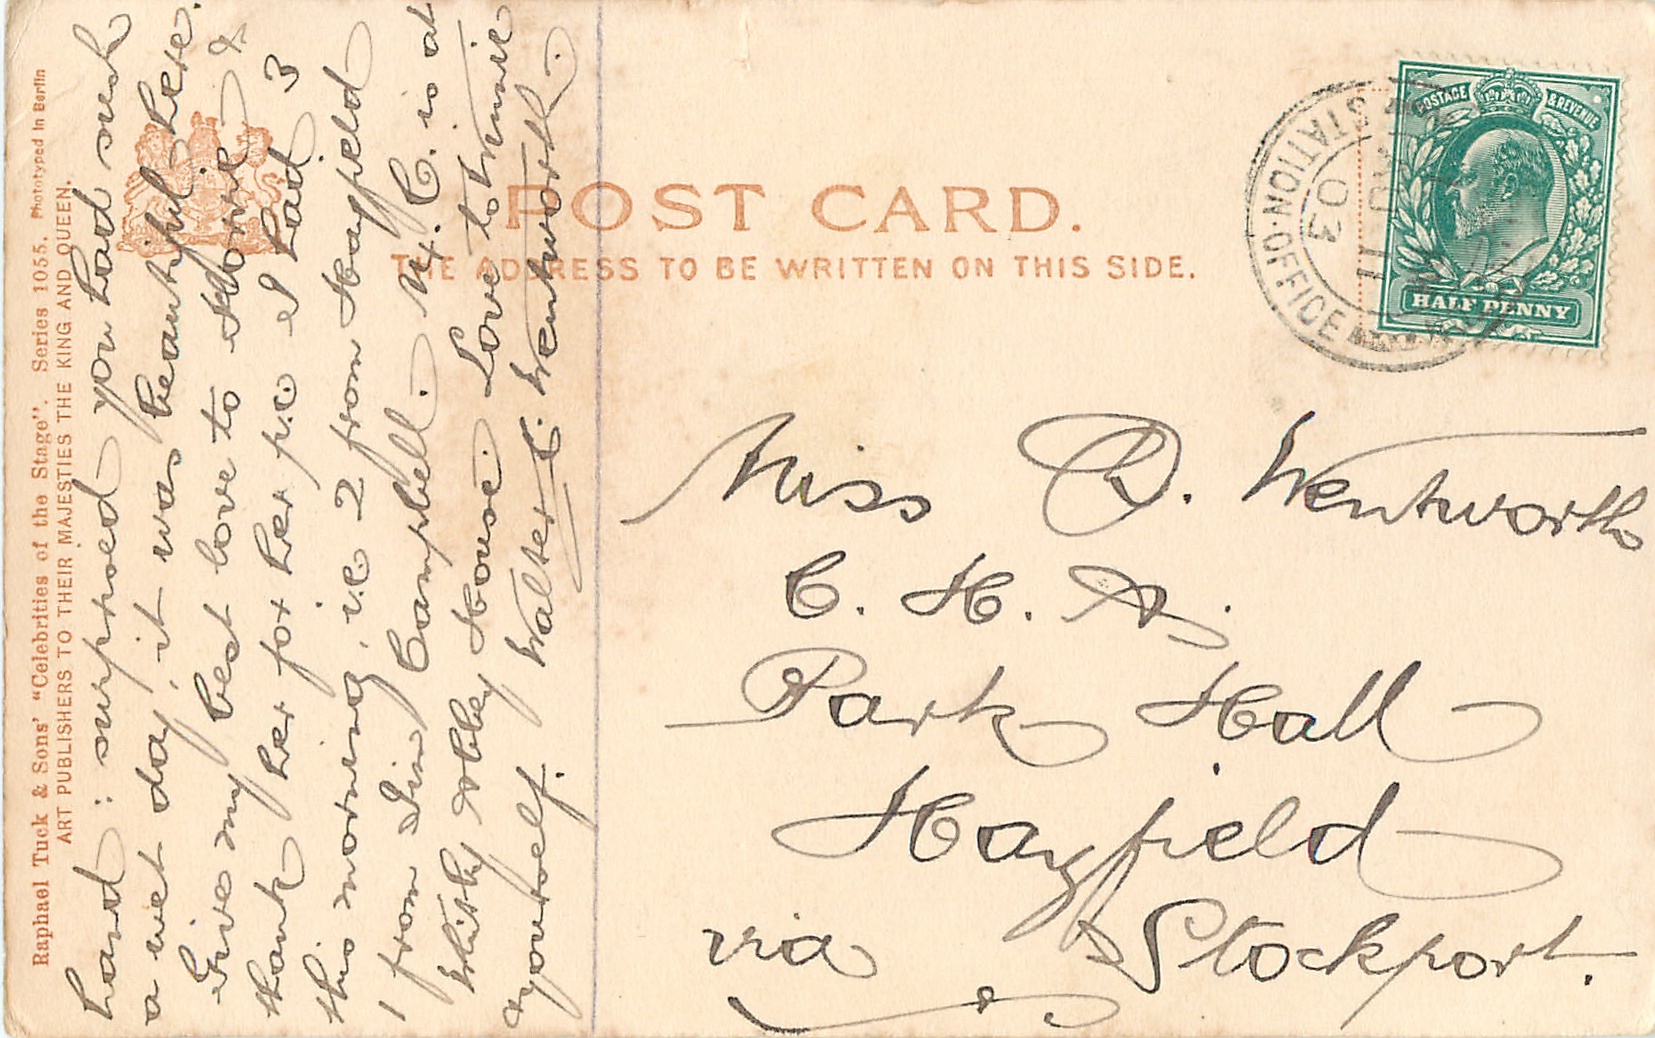 Raphael Tuck & Sons' "Celebrities of the Stage". Series 1055. Phototyped in Berlin
ART PUBLISHERS TO THEIR MAJESTIES THE KING AND QUEEN.
POST CARD.
THE ADDRESS TO BE WRITTEN ON THIS SIDE.
POSTAGE & REVENUE
HALF PENNY
STATION·OFFICE
11
03
hand: surprised you had such
a wet day, it was beautiful here.
Give my best love to Horrie &
thank her for her p.c I had 3
this morning, i.e 2 from Hayfield
1 from Jim Campbell. Mr. C. is at
Whitby Abbey House. Love to Winnie
& yourself. Walter C. Wentworth.
Miss D. Wentworth
C. H. A.
Park Hall
Hayfield
via Stockport.